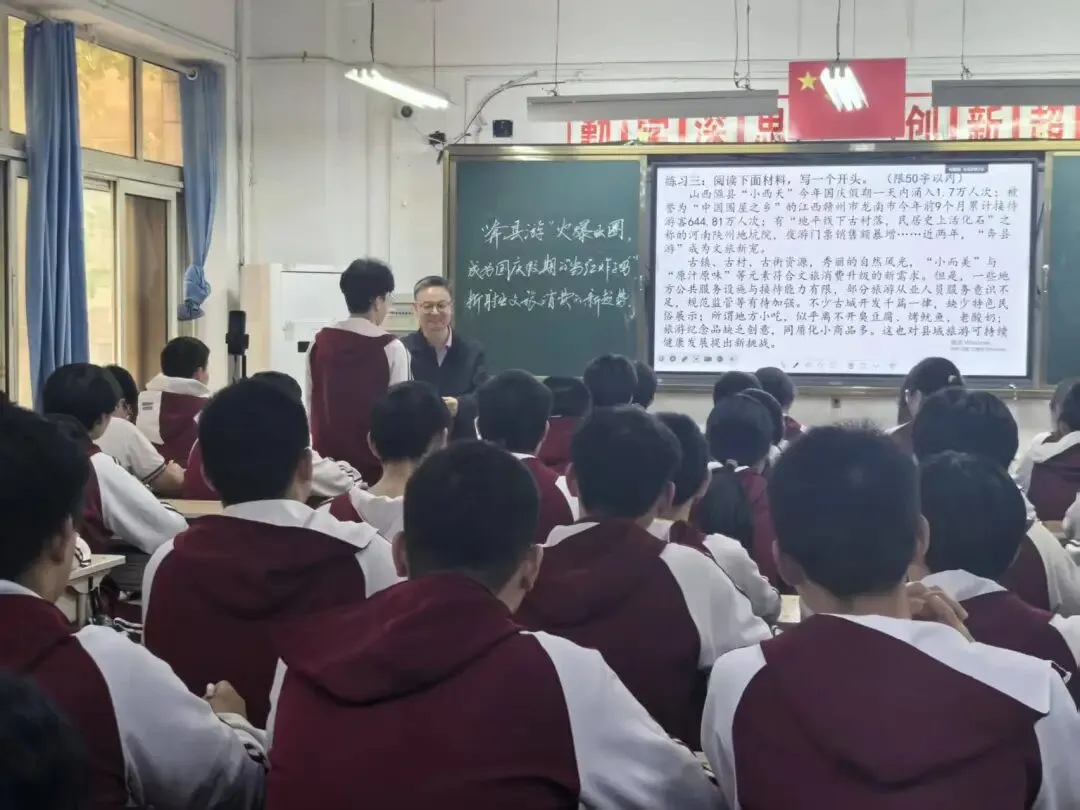 勤学深思
创新超
练习三：阅读下面材料，写一个开头。（限50字以内）
山西隰县“小西天”今年国庆假期一天内涌入1.7万人次；被
誉为“中国围屋之乡”的江西赣州市龙南市今年前9个月累计接待
游客644.81万人次；有“地平线下古村落，民居史上活化石”之
称的河南陕州地坑院，夜游门票销售额暴增……近两年，“奔县
游”成为文旅新宠。
古镇、古村、古街资源，秀丽的自然风光，“小而美”与
“原汁原味”等元素符合文旅消费升级的新需求。但是，一些地
方公共服务设施与接待能力有限，部分旅游从业人员服务意识不
足，规范监管等有待加强。不少古城开发千篇一律，缺少特色民
俗展示；所谓地方小吃，似乎离不开臭豆腐、烤鱿鱼、老酸奶；
旅游纪念品缺乏创意，同质化小商品多。这也对县域旅游可持续
健康发展提出新挑战。
“奔县游”火爆出圈，
成为国庆假期的“当红炸子鸡”，
折射出文旅消费的新趋势。